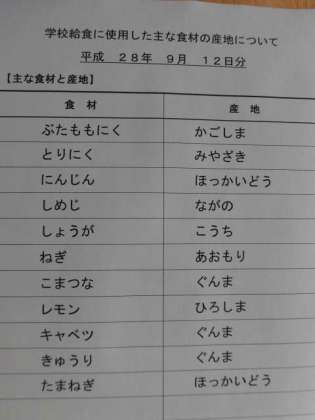 学校給食に使用した主な食材の産地について
平成 28年 9月 12日分
【主な食材と産地】
食 材 産 地
ぶたももにく かごしま
とりにく みやざき
にんじん ほっかいどう
しめじ ながの
しょうが こうち
ねぎ あおもり
こまつな ぐんま
レモン ひろしま
キャベツ ぐんま
きゅうり ぐんま
たまねぎ ほっかいどう